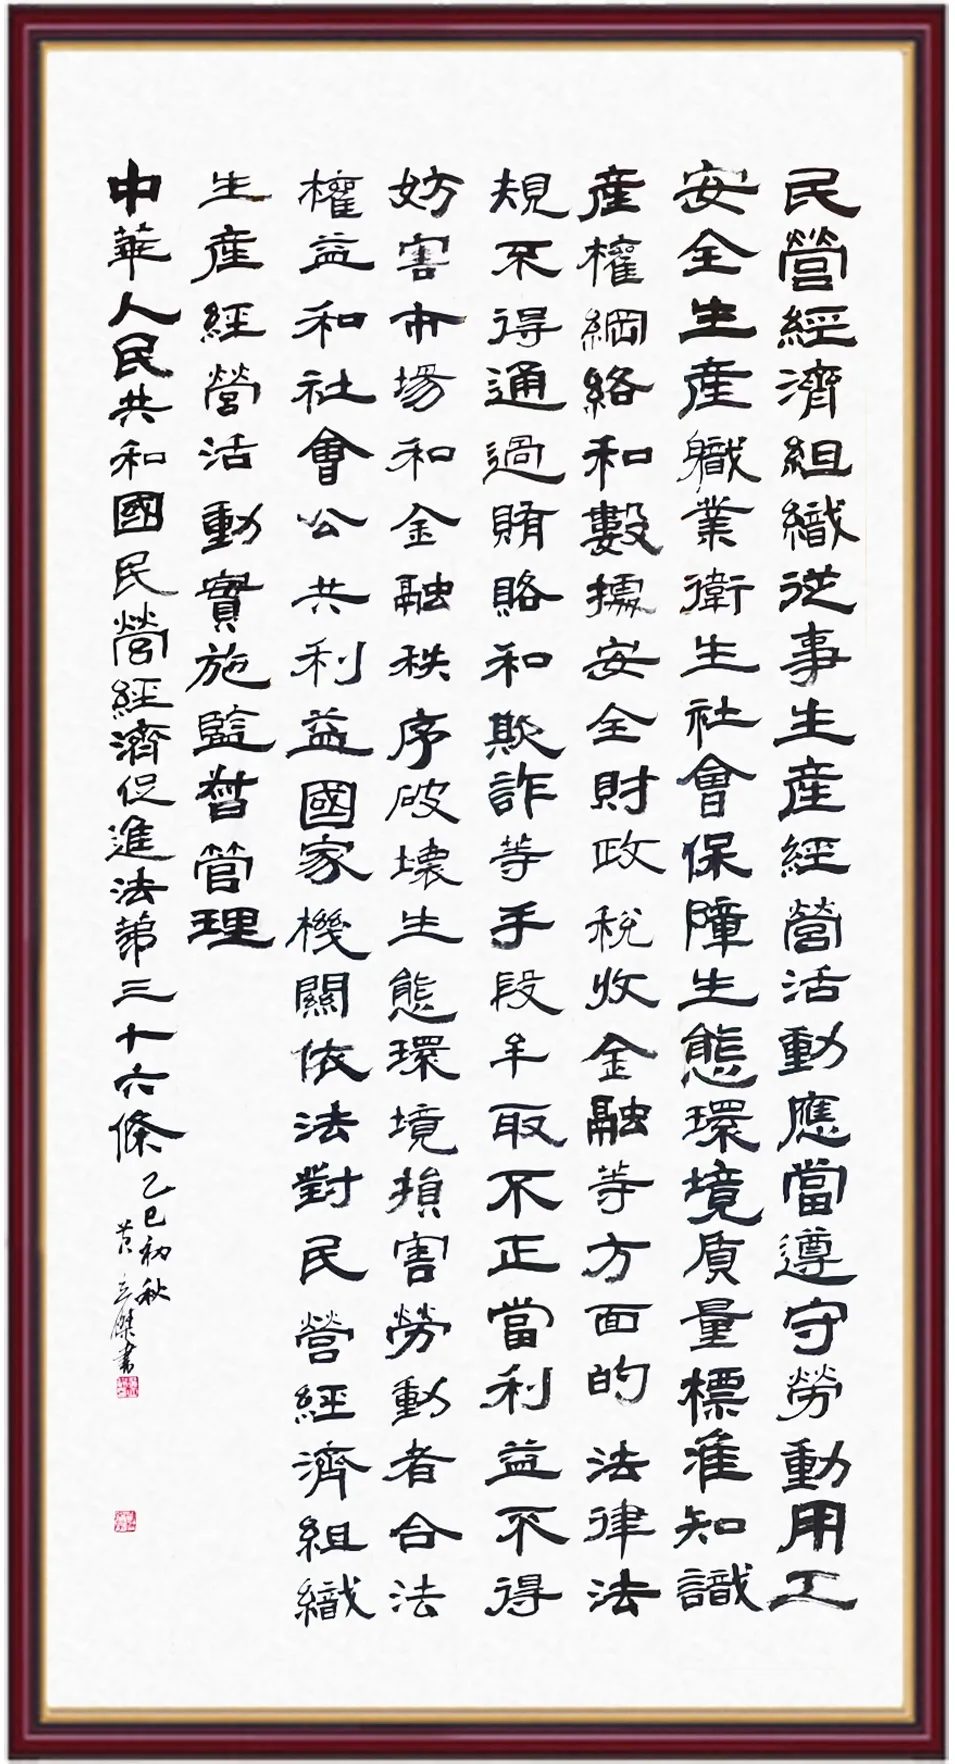 民營經濟組織從事生産經營活動應當遵守勞動用工
安全生産職業衛生社會保障生態環境质量標准知識
産權網絡和數據安全財政稅收金融等方面的法律法
規不得通過賄賂和欺詐等手段牟取不正當利益不得
妨害市場和金融秩序破壞生態環境損害勞動者合法
權益和社會公共利益國家機關依法對民營經濟組織
生産經營活動實施監督管理
中華人民共和國民營經濟促進法第三十六條
乙巳初秋
立傑書